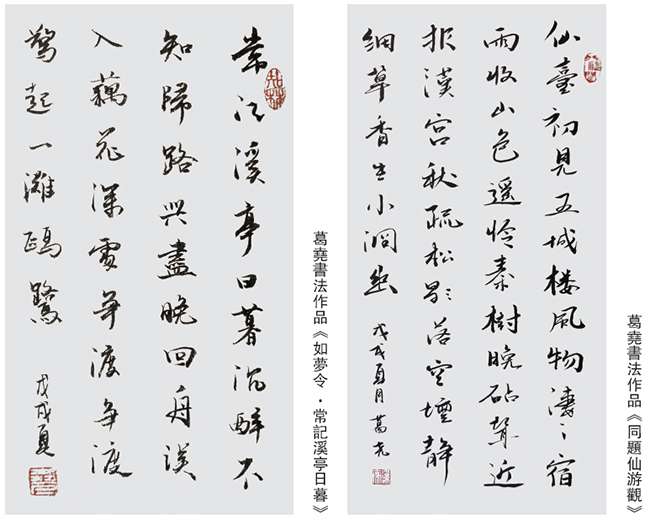 葛堯書法作品《同題仙游觀》
仙臺初見五城楼風物凄〻宿
雨收山色遥怜秦樹晚砧聲近
报漢宮秋疏松影落空壇静
细草香生小洞幽
戊戌夏月葛尧
葛堯書法作品《如夢令·常記溪亭日暮》
常記溪亭日暮沉醉不
知歸路興盡晚回舟误
入藕花深處争渡争渡
驚起一灘鷗鷺
戊戌夏